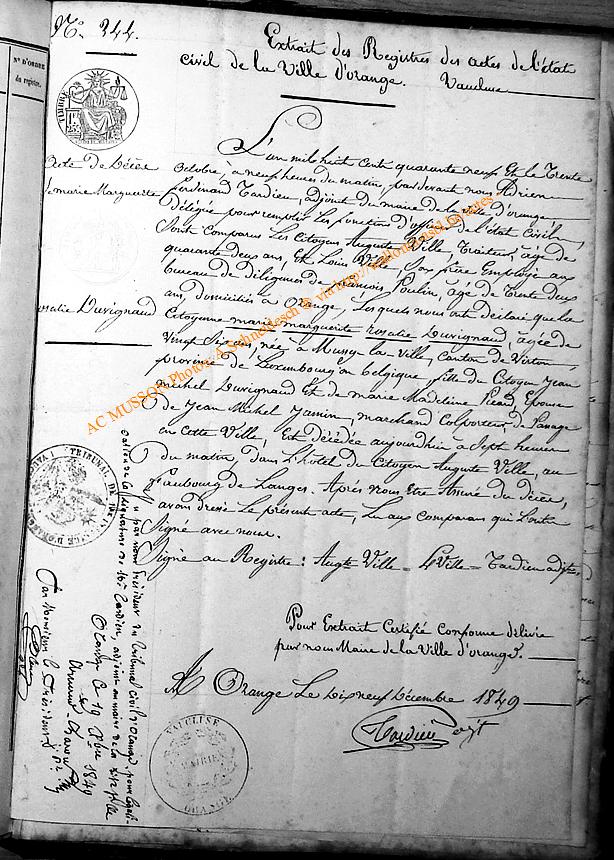 N° D'ORDRE
du registre.
N° 344.
Extrait des Registres des actes de l'état
civil de la Ville d'Orange. Vaucluse
TIMBRE
Acte De Décès
de marie Marguerite
rosalie Duvignaud
L'an mil huit cent quarante neuf Et le Trente
Octobre, à neuf heures du matin, pardevant nous Adrien
Ferdinand Tardieu, adjoint du maire de la ville d'orange
délégué pour remplir les fonctions d'officier de l'état Civil,
Sont comparus Les Citoyens Auguste Ville, Traiteur, âgé de
quarante deux ans, Et Louis Ville, son frère Employé au
bureau de Diligences de François Poulin, âgé de Trente deux
ans, domiciliés à Orange, Lesquels nous ont déclaré que la
Citoyenne marie marguerite rosalie Duvignaud, agée de
Vingt Six ans, née à Mussy-la-Ville, canton de Virton,
province de Luxembourg en Belgique, fille du Citoyen Jean
michel Duvignaud Et de marie Madeleine Picard, Epouse
de Jean Michel Jamin, marchand colporteur de Passage
en Cette Ville, Est Décédée aujourd'hui à Sept heures
du matin, dans L'hôtel du Citoyen Auguste Ville, au
Faubourg de Langes. Après nous être Assuré du Décès,
avons dressé Le présent acte, Lu aux comparans qui L'ont
Signé avec nous.
Signé au Registre: Augte Ville = L. Ville = Tardieu adjt
Pour Extrait Certifié conforme délivré
par nous Maire de la Ville d'orange.
A Orange Le Dix neuf Décembre 1849
Tardieu adjt
VAUCLUSE
MAIRIE
ORANGE
TRIBUNAL DE
INSTANCE D'ORANGE
Vu par nous Président du tribunal civil d'Orange, pour légali-
sation de la signature de Mr Tardieu, adjoint au maire de la
Orange le 19 Xbre 1849
Par Monsieur le Président
AC MUSSON Photos: A Schneidesch @ via http://wallonica031.be/actes